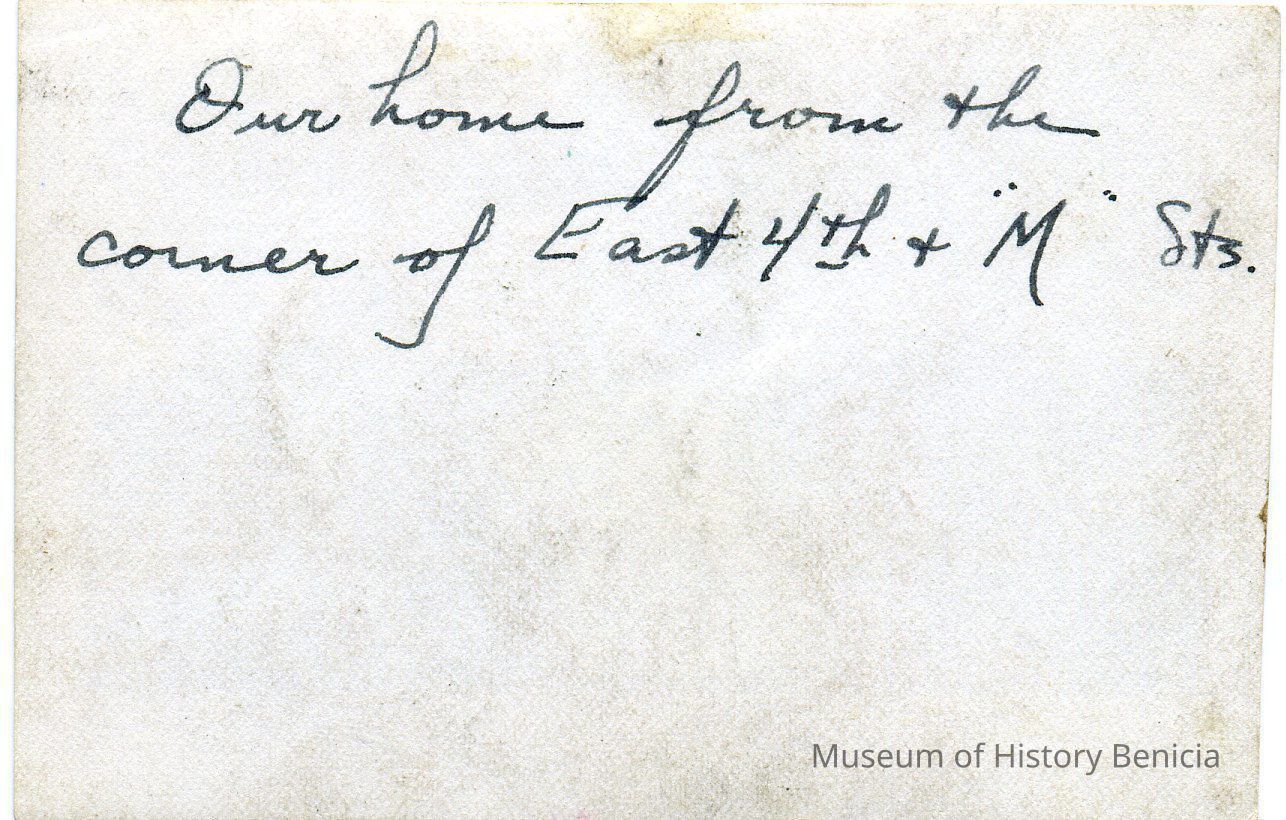 Our home from the
corner of East 4th + "M" Sts.
Museum of History Benicia